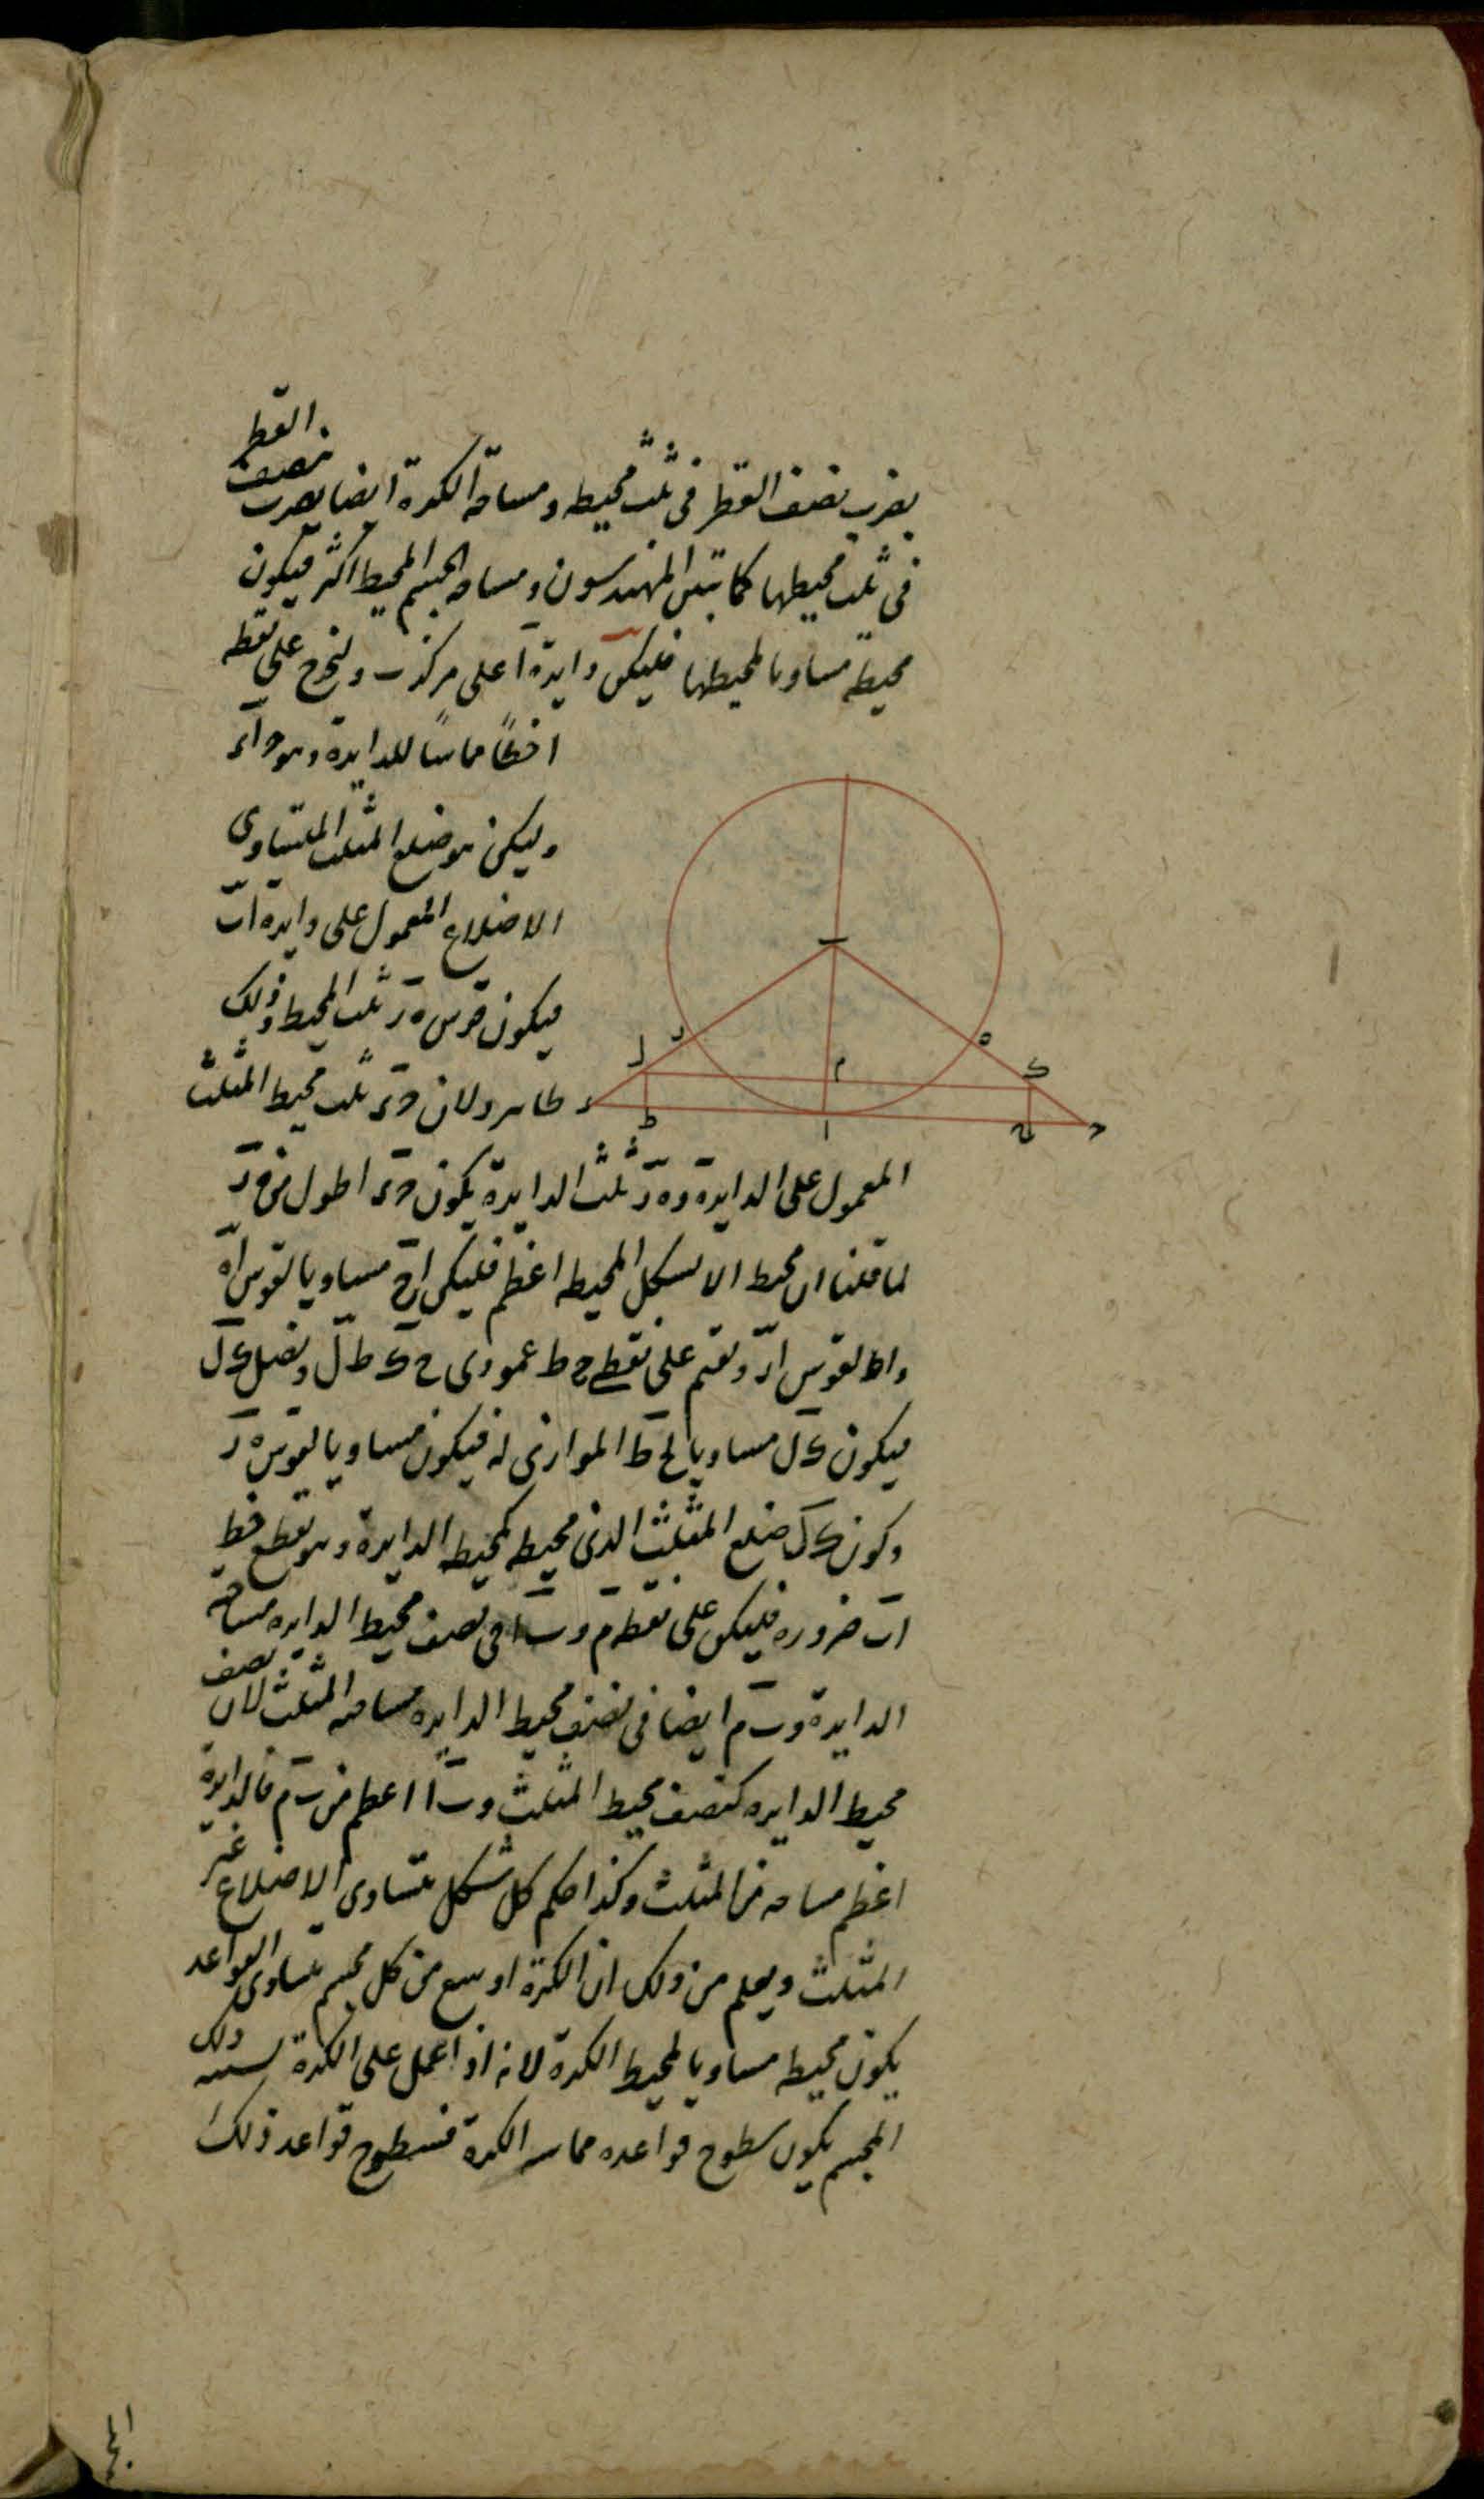 يضرب نصف القطر فى ثلث محيطه ومساحة الكرة ايضا يضرب نصف القطر
فى ثلث محيطها كما تبين المهندسون ومساحه الجسم المحيط اكثر فيكون
محيطه مساويا لمحيطها فليكن دايرة ا على مركز ب ولنخرج على نقطه
ا خطًا مماسًا للدايرة وهو حاء
وليكن هو ضلع المثلث المتساوى
الاضلاع المعمول على دايرة اب
فيكون قوس ه ر ثلث المحيط وذلك
ظاهر ولان حء ثلث محيط المثلث
المعمول على الدايرة وه ر ثلث الدايرة يكون حء اطول من ه ر
لما قلنا ان محيط الاشكال المحيطه اعظم فليكن اح مساويا لقوس اه
واط لقوس ار ونقيم على نقطى ح ط عمودى ح ك ط ل ونصل ك ل
فيكون ك ل مساويا لح ط الموازى له فيكون مساويا لقوس ه ر
وكون ك ل ضلع المثلث الذى محيطه كمحيط الدايرة وهو يقطع خط
اب ضرورة فليكن على نقطة م وب ا فى نصف محيط الدايره مساحة
الدايرة وب م ايضا فى نصف محيط الدايره مساحه المثلث لان نصف
محيط الدايره كنصف محيط المثلث وب ا اعظم من ب م فالدايرة
اعظم مساحه من المثلث وكذا حكم كل شكل متساوى الاضلاع غير
المثلث ويعلم من ذلك ان الكرة اوسع من كل مجسم متساوى القواعد
يكون محيطه مساويا لمحيط الكرة لانه اذا عمل على الكرة شبيه ذلك
المجسم يكون سطوح قواعده مماسه الكرة فسطوح قواعد ذلك
ر
ه
ل
م
ك
ء
ط
ا
ح
ح